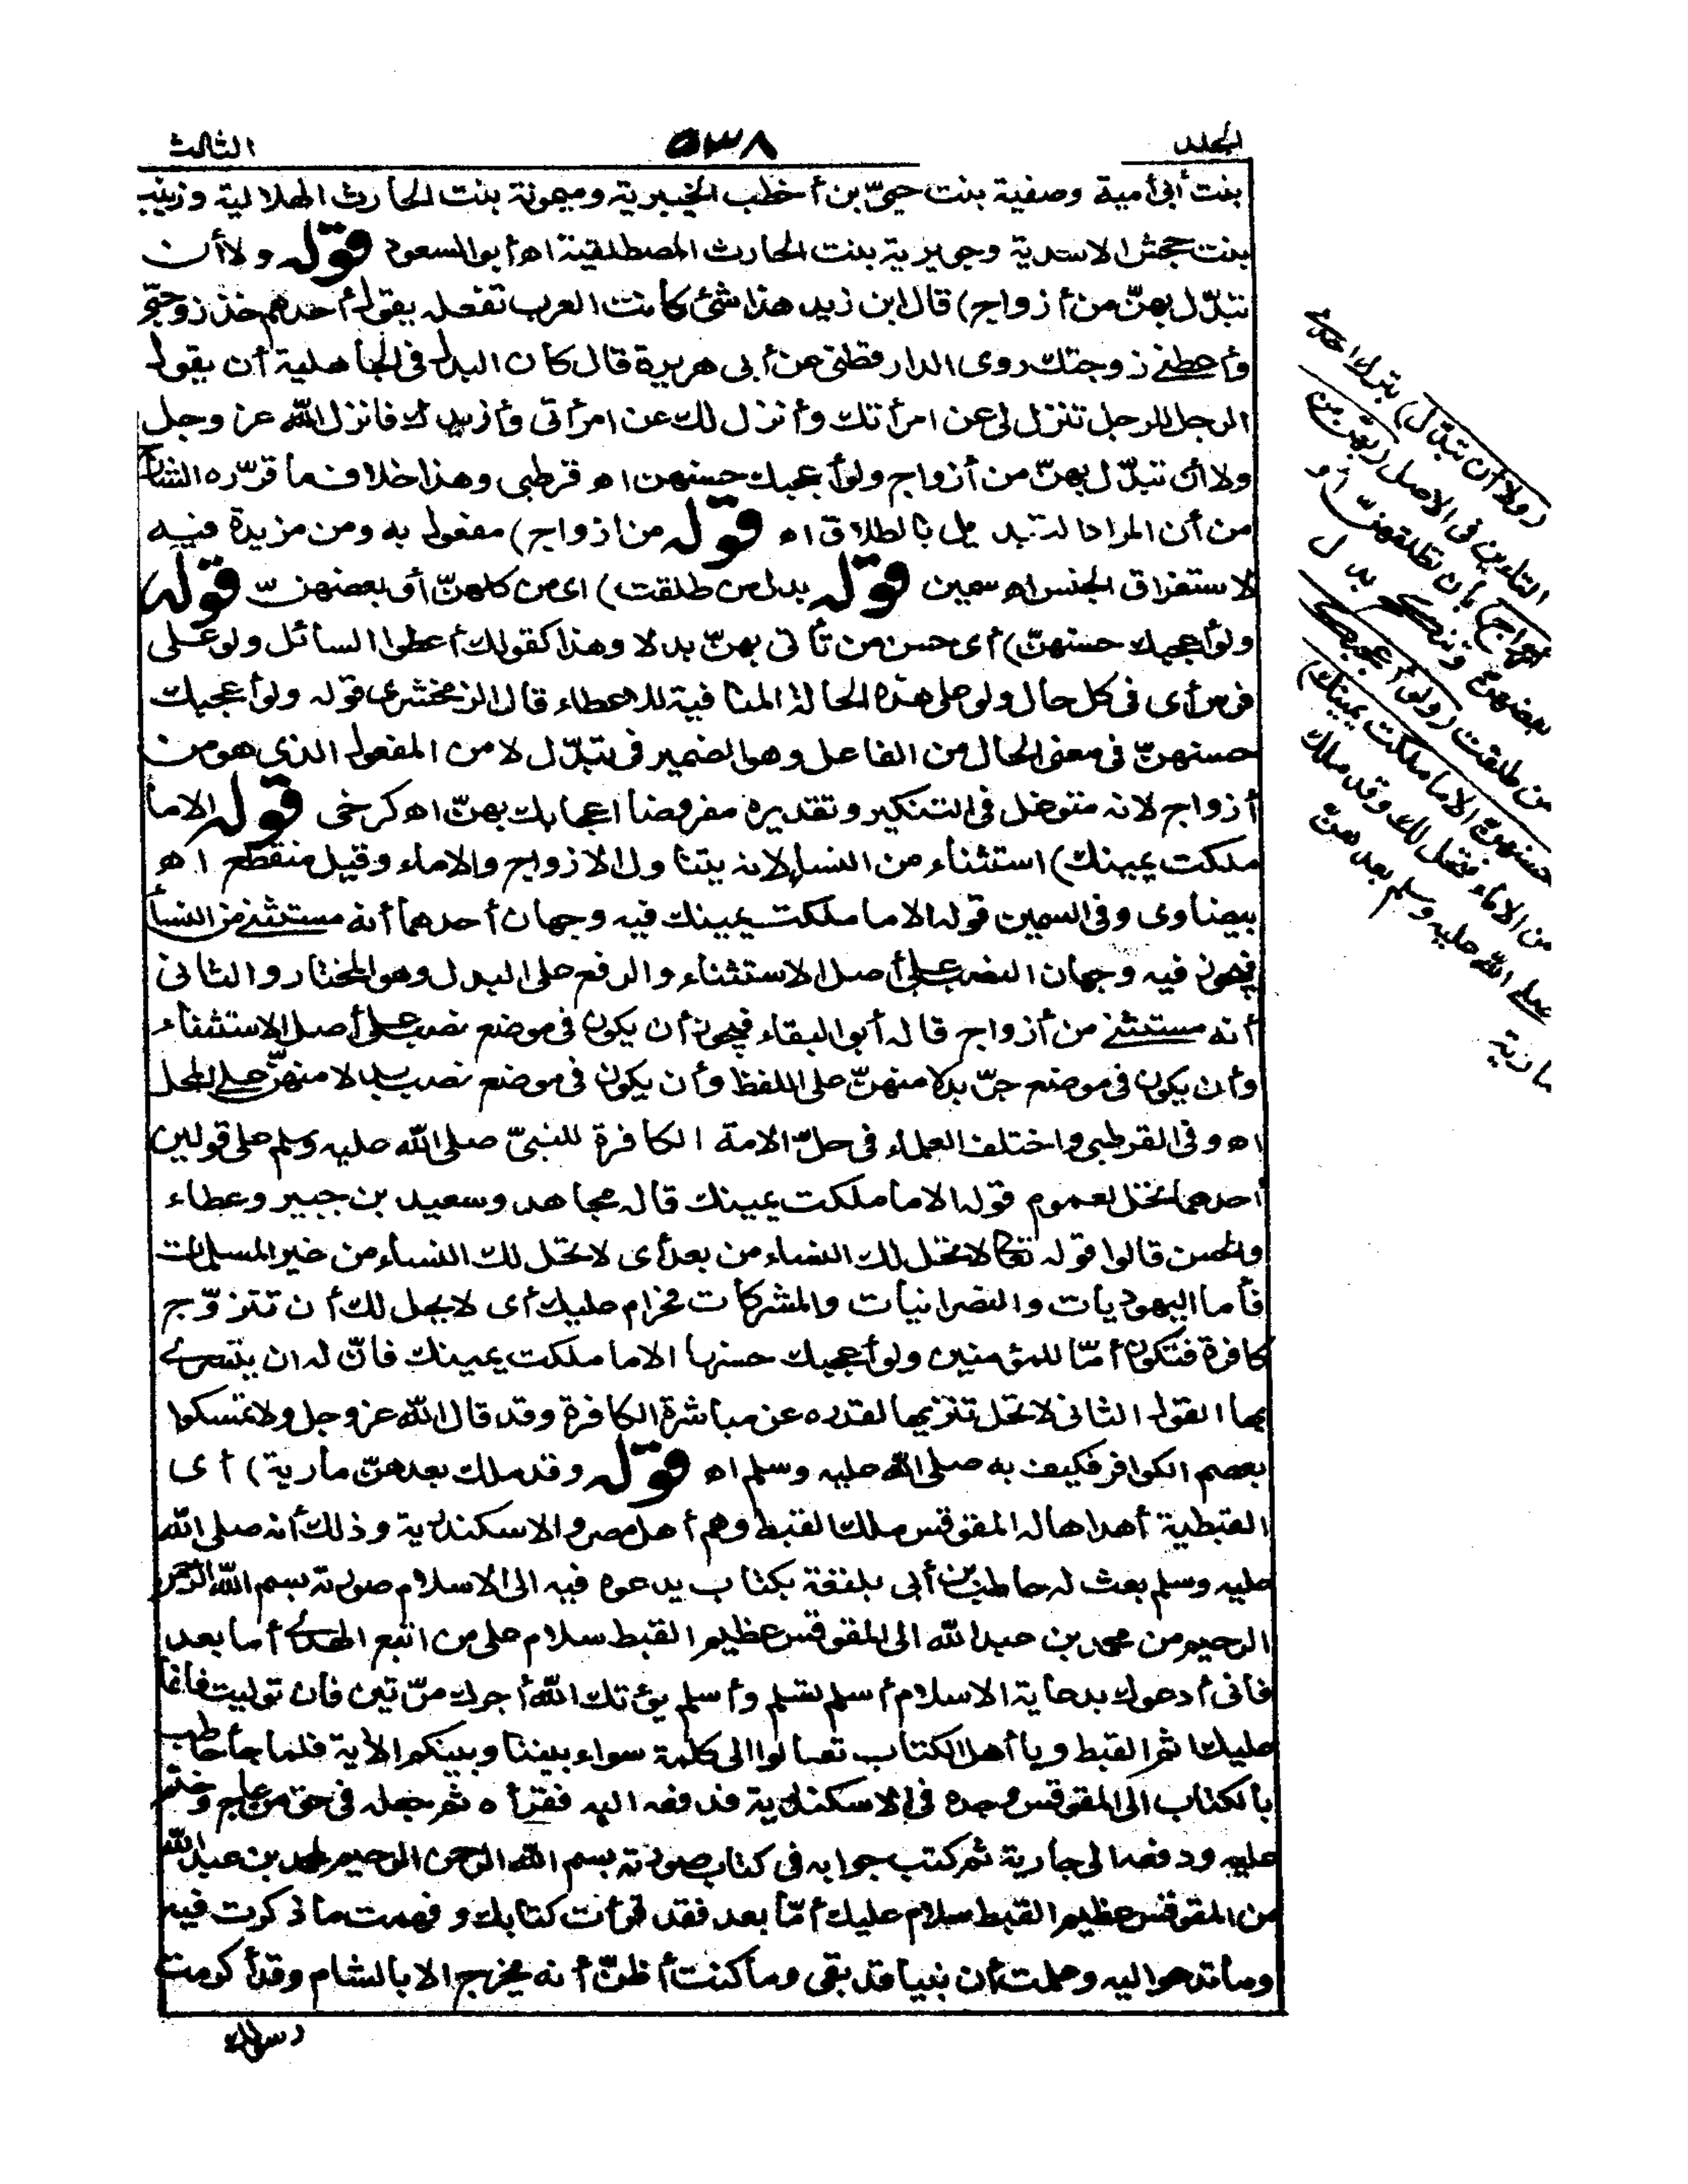 المجلد
٥٣٨
الثالث
بنت أبى أمية وصفية بنت حيىّ بن أخطب الخيبرية وميمونة بنت الحارث الهلالية وزينب
بنت جحش الاسدية وجويرية بنت الحارث المصطلقية اه أبو السعود قوله ولا أن
تبدّل بهنّ من أزواج) قال ابن زيد هذا شئ كانت العرب تفعله يقول أحدهم خذ زوجتى
وأعطنى زوجتك روى الدار قطنى عن أبى هريرة قال كان البدل فى الجاهلية أن يقول
الرجل للرجل تنزل لى عن امرأتك وأنزل لك عن امرأتى وأزيدك فانزل الله عز وجل
ولا أن تبدّل بهنّ من أزواج ولو أعجبك حسنهن اه قرطبى وهذا خلاف ما قرّره الشارح
من أن المراد التبديل بالطلاق اه قوله من ازواج) مفعول به ومن مزيدة فيه
لاستغراق الجنس اه سمين قوله بدل من طلقت) اى من كلهنّ أو بعضهنّ قوله
ولو أعجبك حسنهنّ) أى حسن من تأتى بهنّ بدلا وهذا كقولك أعطوا السائل ولو على
فرس أى فى كل حال ولو على هذه الحالة المنافية للاعطاء قال الزمخشرى قوله ولو أعجبك
حسنهنّ فى معنى الحال من الفاعل وهو الضمير فى تبدّل لا من المفعول الذى هو من
أزواج لانه متوغل فى التنكير وتقديره مفروضا اعجابك بهنّ اه كرخى قوله الاما
ملكت يمينك) استثناء من النساء لانه يتناول الازواج والاماء وقيل منقطع اه
بيضاوى وفى السمين قوله الا ما ملكت يمينك فيه وجهان أحدهما أنه مستثنى من النساء
فيجوز فيه وجهان النصب على أصل الاستثناء والرفع على البدل وهو المختار والثانى
أنه مستثنى من أزواج قاله أبو البقاء فيجوز أن يكون فى موضع نصب على أصل الاستثناء
وأن يكون فى موضع جرّ بدلا منهنّ على اللفظ وأن يكون فى موضع نصب بدلا منهنّ على المحل
اه وفى القرطبى واختلف العلماء فى حلّ الامة الكافرة للنبىّ صلى الله عليه وسلم على قولين
أحدهما تحل لعموم قوله الا ما ملكت يمينك قاله مجاهد وسعيد بن جبير وعطاء
والحسن قالوا قوله تعالى لا تحل لك النساء من بعد أى لا تحل لك النساء من غير المسلمات
فأما اليهوديات والنصرانيات والمشركات فحرام عليك أى لا يحل لك أن تتزوّج
كافرة فتكون أمّا للمؤمنين ولو أعجبك حسنها الا ما ملكت يمينك فانّ له ان يتسرى
بها القول الثانى لا تحل تنزيها لقدره عن مباشرة الكافرة وقد قال الله عز وجل ولا تمسكوا
بعصم الكوافر فكيف به صلى الله عليه وسلم اه قوله وقد ملك بعدهنّ مارية) أى
القبطية أهداها له المقوقس ملك القبط وهم أهل مصر والاسكندرية وذلك أنه صلى الله
عليه وسلم بعث له حاطب بن أبى بلتعة بكتاب يدعوه فيه الى الاسلام صورته بسم الله الرحمن
الرحيم من محمد بن عبد الله الى المقوقس عظيم القبط سلام على من اتبع الهدى أما بعد
فانى أدعوك بدعاية الاسلام أسلم تسلم وأسلم يؤتك الله أجرك مرّتين فان توليت فانما
عليك اثم القبط ويا أهل الكتاب تعالوا الى كلمة سواء بيننا وبينكم الآية فلما جاء حاطب
بالكتاب الى المقوقس وجده فى الاسكندرية فدفعه اليه فقرأه ثم جعله فى حق من عاج وختم
عليه ودفعه الى جارية ثم كتب جوابه فى كتاب صورته بسم الله الرحمن الرحيم لمحمد بن عبد الله
من المقوقس عظيم القبط سلام عليك أمّا بعد فقد قرأت كتابك وفهمت ما ذكرت فيه
وما تدعو اليه وعلمت أن نبيا قد بقى وما كنت أظنّ أنه يخرج الا بالشام وقد أكرمت
رسولك
(ولا أن تبدّل) بترك احدى
التاءين فى الاصل (بهنّ من
أزواج) بأن تطلقهنّ أو
بعضهنّ وتنكح بدل
من طلقت (ولو أعجبك
حسنهنّ الا ما ملكت يمينك)
من الاماء فتحل لك وقد ملك
صلى الله عليه وسلم بعدهنّ
مارية